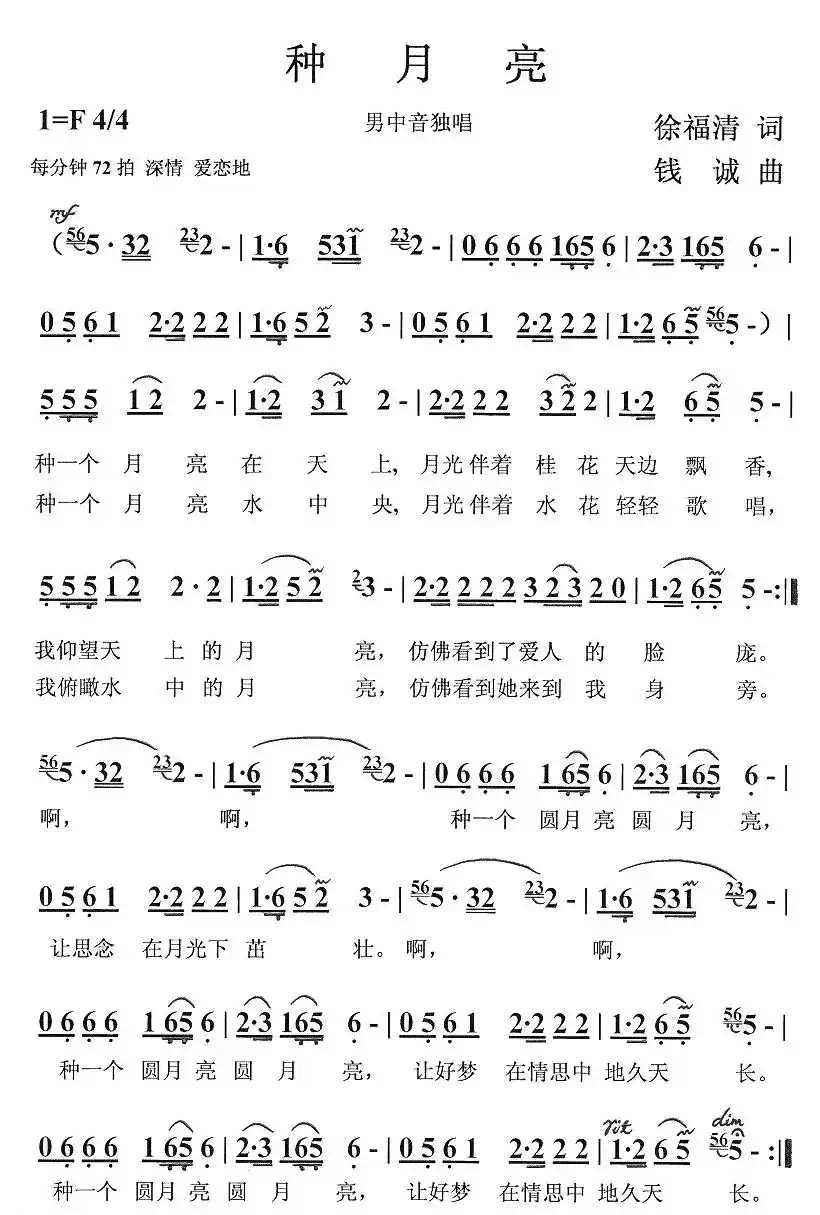 种 月 亮
1=F 4/4
男中音独唱
徐福清 词
每分钟 72 拍 深情 爱恋地
钱 诚 曲
mf
（56 5 · 32 23 2 - | 1·6 531 23 2 - | 0 6 6 6 165 6 | 2·3 165 6 - |
0 5 6 1 2·2 2 2 | 1·6 5 2 3 - | 0 5 6 1 2·2 2 2 | 1·2 6 5 56 5 -）|
5 5 5 1 2 2 - | 1·2 3 1 2 - | 2·2 2 2 3 2 2 | 1·2 6 5 5 - |
种一个 月 亮 在 天 上, 月光 伴着 桂 花 天边 飘 香,
种一个 月 亮 水 中 央, 月光 伴着 水 花 轻轻 歌 唱,
5 5 5 1 2 2 · 2 | 1·2 5 2 2 3 - | 2·2 2 2 2 3 2 3 2 0 | 1·2 6 5 5 - :||
我仰望天 上 的 月 亮, 仿佛看到了爱人 的 脸 庞。
我俯瞰水 中 的 月 亮, 仿佛看到她来到 我 身 旁。
56 5 · 32 23 2 - | 1·6 531 23 2 - | 0 6 6 6 1 65 6 | 2·3 165 6 - |
啊, 啊, 种一个 圆月 亮 圆 月 亮,
0 5 6 1 2·2 2 2 | 1·6 5 2 3 - | 56 5 · 32 23 2 - | 1·6 531 23 2 - |
让思念 在月光下 茁 壮。啊, 啊,
0 6 6 6 1 65 6 | 2·3 165 6 - | 0 5 6 1 2·2 2 2 | 1·2 6 5 56 5 - |
种一个 圆月 亮 圆 月 亮, 让好梦 在情思中 地久天 长。
rit dim
0 6 6 6 1 65 6 | 2·3 165 6 - | 0 5 6 1 2·2 2 2 | 1·2 6 5 56 5 - :||
种一个 圆月 亮 圆 月 亮, 让好梦 在情思中 地久天 长。